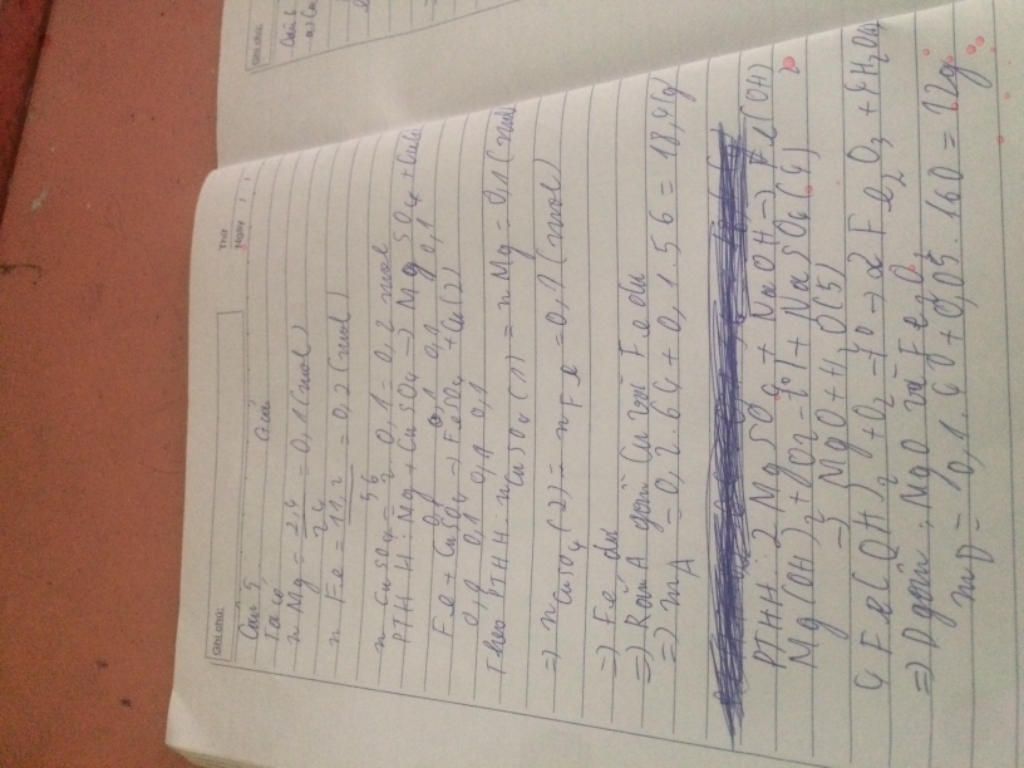 Ghi chú:
Thứ
Ngày
Câu 5
Giải
Ta có
n Mg = 2,4 / 24 = 0,1 (mol)
n Fe = 11,2 / 56 = 0,2 (mol)
n CuSO4 = 2 . 0,1 = 0,2 mol
PTHH: Mg + CuSO4 => MgSO4 + Cu(1)
0,1 0,1 0,1
Fe + CuSO4 => FeSO4 + Cu(2)
0,1 0,1 0,1 0,1
Theo PTHH: n CuSO4 (1) = n Mg = 0,1 (mol)
=> n CuSO4 (2) = n Fe = 0,1 (mol)
=> Fe dư
=> Rắn A gồm Cu và Fe dư
=> mA = 0,2.64 + 0,1.56 = 18,4(g)
PTHH: 2 MgSO4 + NaOH => (OH)2
Mg(OH)2 + Na2SO4(4)
=> MgO + H2O(5)
4 Fe(OH)2 + O2 -to-> 2Fe2O3 + 4H2O(6)
=> D gồm: MgO và Fe2O3
mD = 0,1.40 + 0,05.160 = 12g
Ghi chú:
Câu